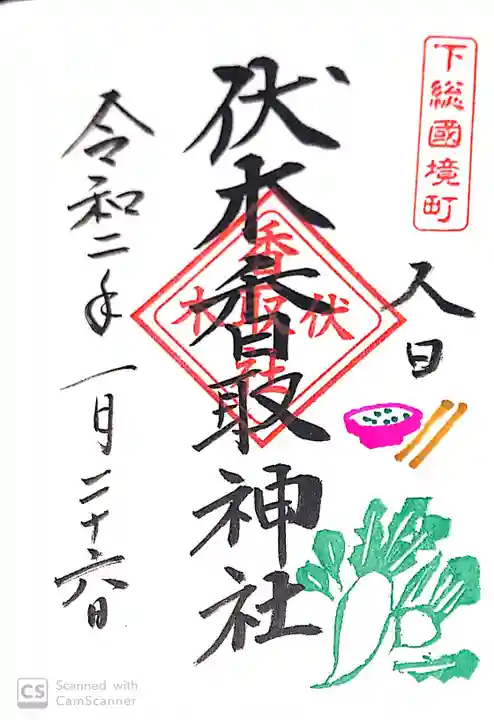 下総國境町
人日
伏木香取神社
伏木
香取社
令和二年一月二十六日
CS Scanned with
CamScanner